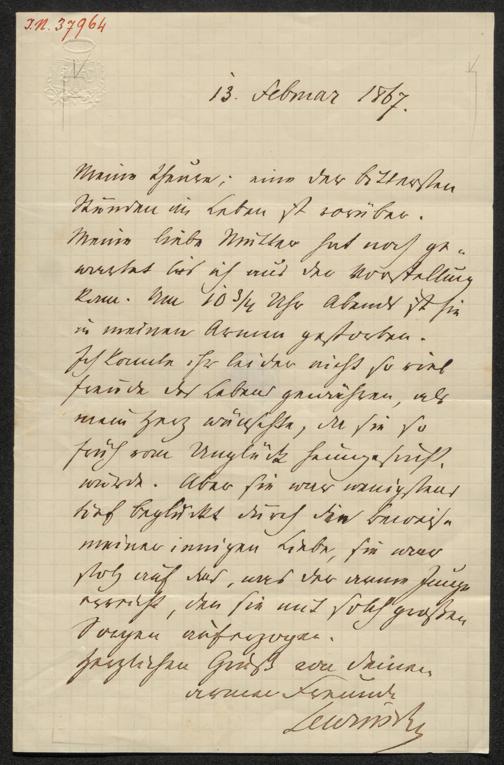 I.N. 37964
13. Februar 1867.
Meine Theure; eine der bittersten
Stunden im Leben ist vorüber.
Meine liebe Mutter hat noch ge-
wartet bis ich aus der Vorstellung
kam. Um 10 3/4 Uhr Abends ist sie
in meinen Armen gestorben.
Ich konnte ihr leider nicht so viel
Freude des Lebens gewähren, als
mein Herz wünschte, da sie so
früh vom Unglück heimgesucht
wurde. Aber sie war wenigstens
tief beglückt durch die Beweise
meiner innigen Liebe, sie war
stolz auf das, was der arme Junge
erreicht, den sie mit solch großen
Sorgen auferzogen.
Herzlichen Gruß von deinem
armen Freunde
Lewinsky